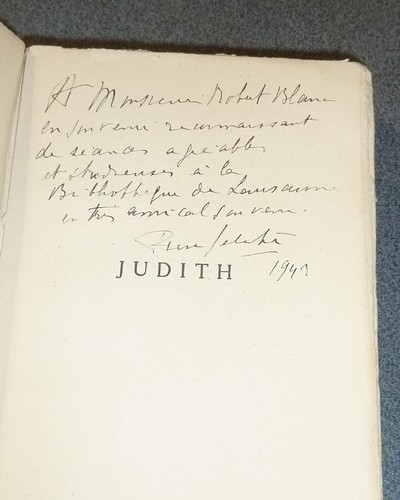 A Monsieur Robert Blanc
en souvenir reconnaissant
de séances agréables
et studieuses à la
Bibliothèque de Lausanne
en très amical souvenir.
JUDITH 1943